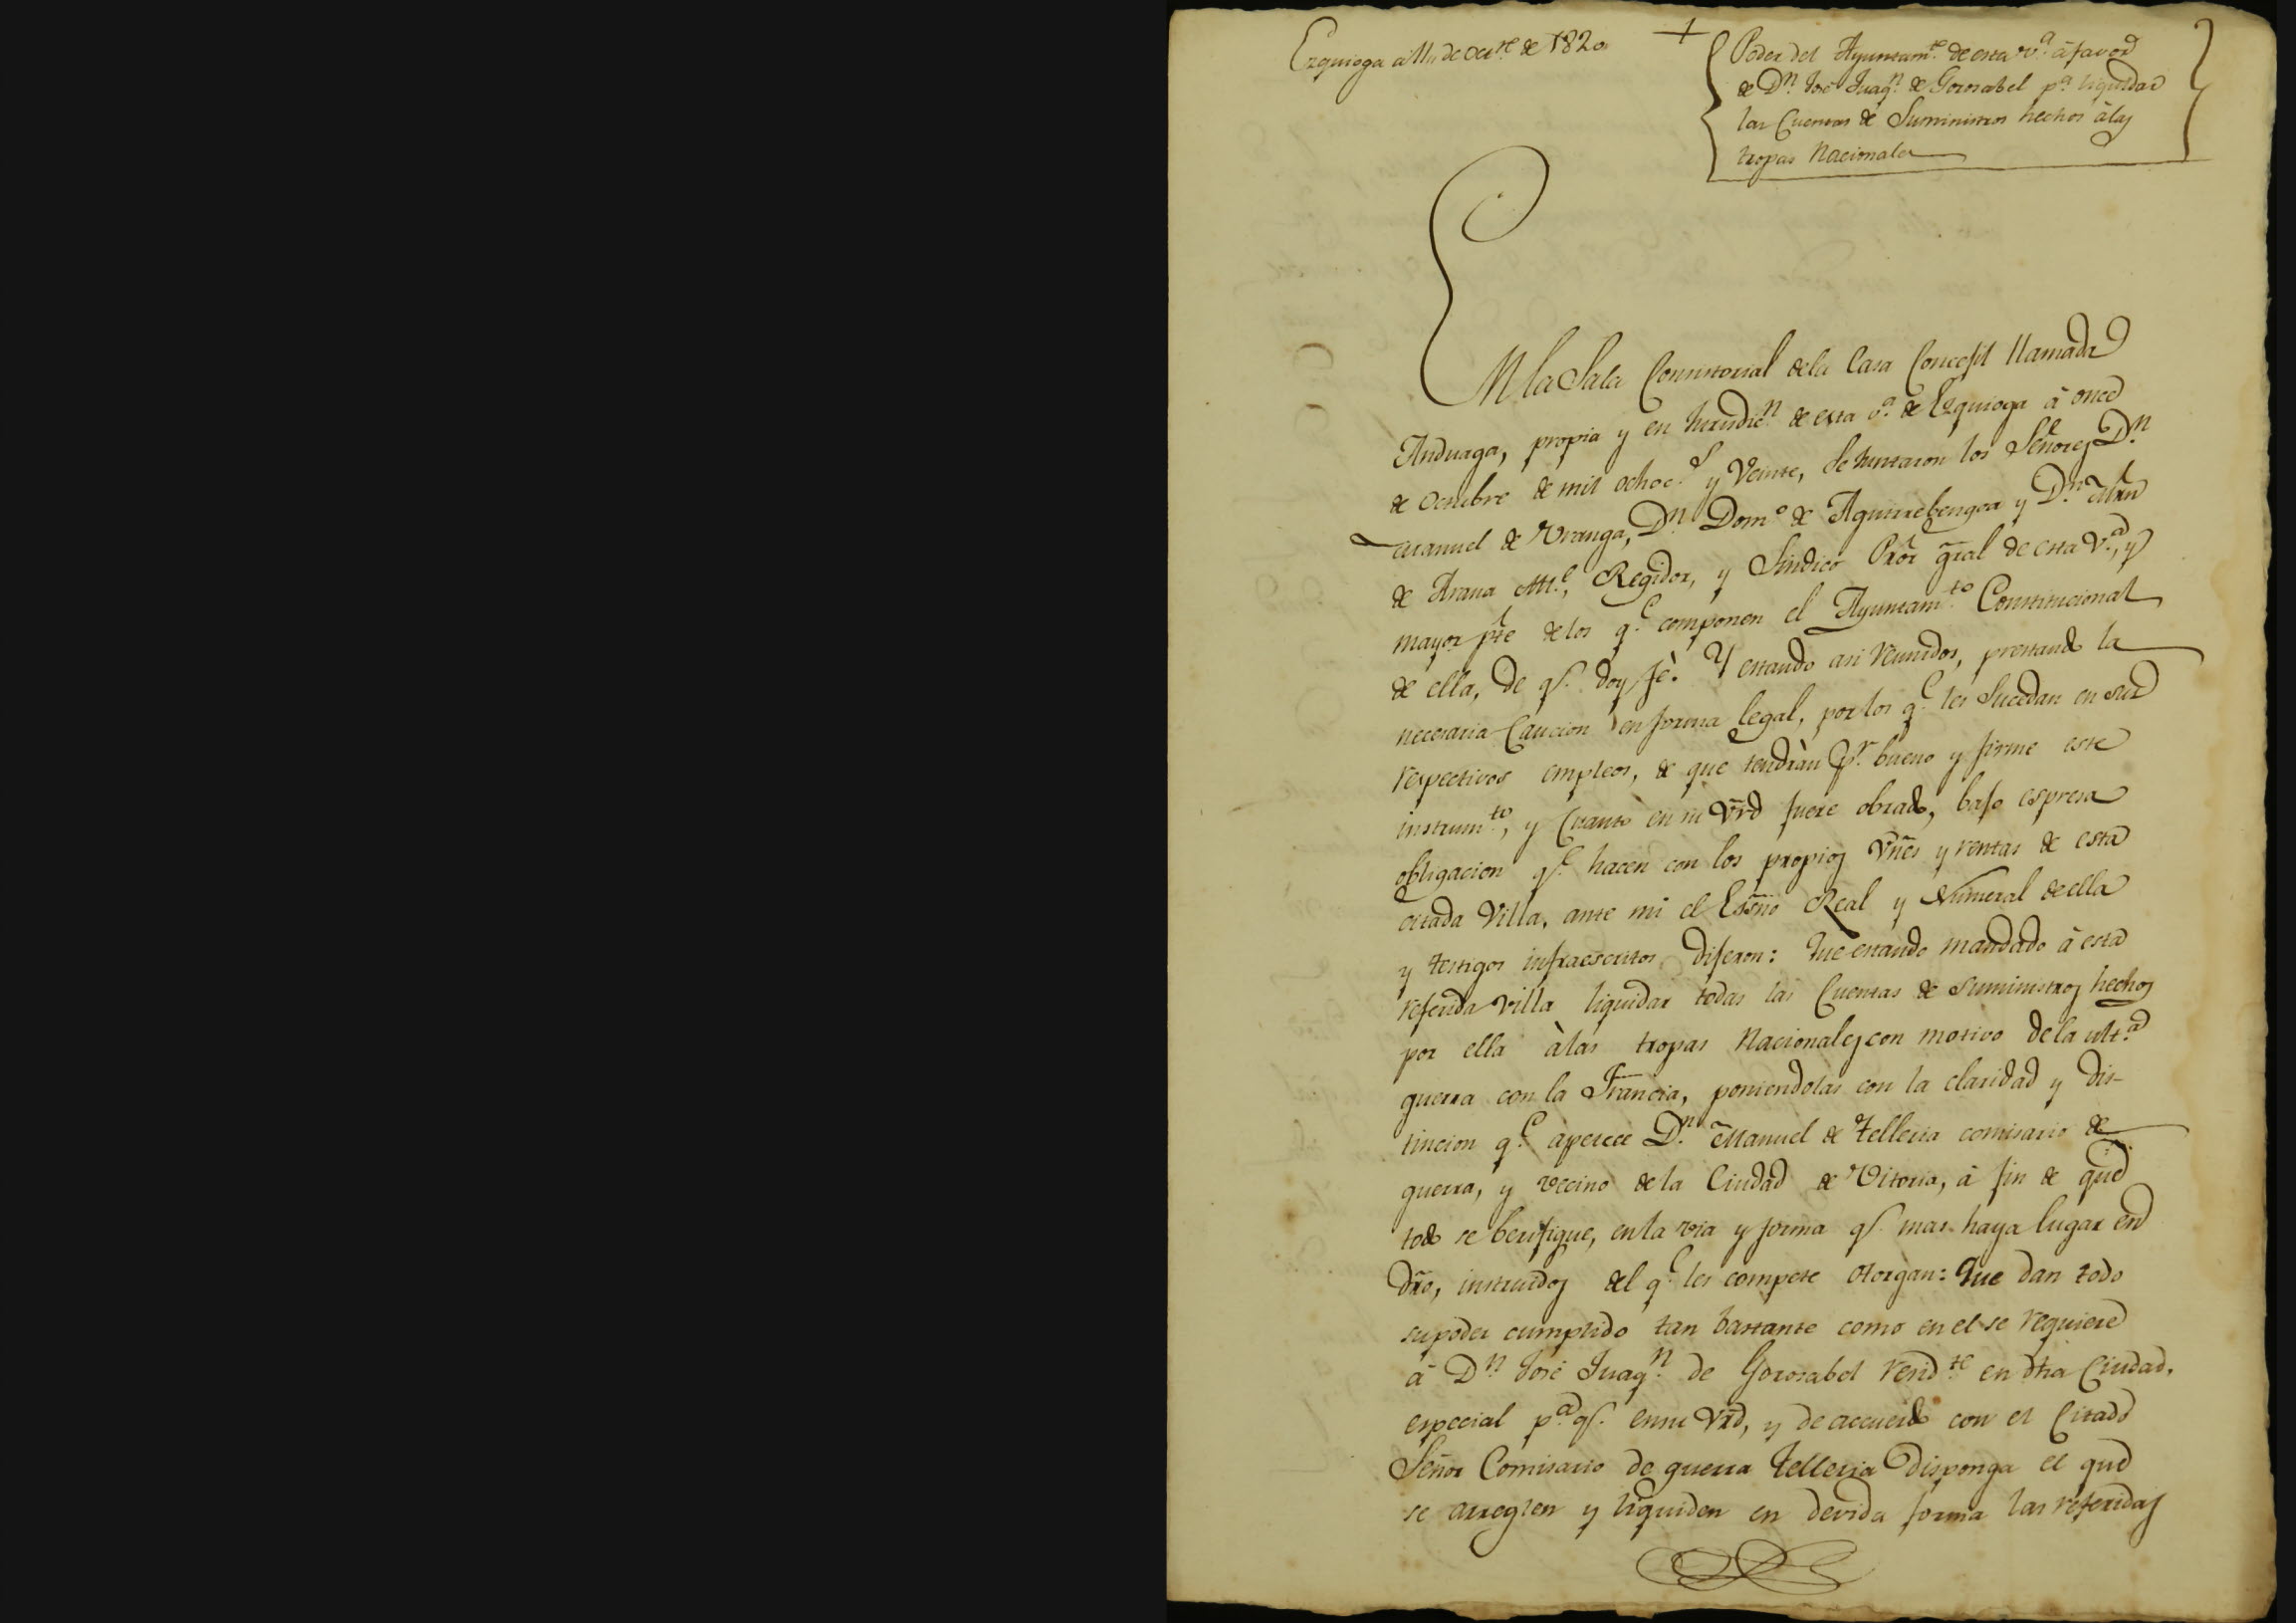 Ezquioga á 11 de Octre de 1820
+
Poder del Ayuntamte de esta va á favor
de Dn José Juaqn de Gorosabel pa liquidar
las Cuentas de Suministros hechos á las
tropas Nacionales
En la Sala Consistorial de la Casa Concejil llamada
Anduaga, propia y en Jurisdicn de esta va de Ezquioga á once
de Octubre de mil ochocs y Veinte, se Juntaron los Señores Dn
Manuel de Uranga, Dn Domo de Aguirrebengoa y Dn Mrn
de Arana Alle, Regidor, y Sindico Pror gral de esta Va, y
mayor pte de los qe componen el Ayuntamto Constitucional
de ella, de qe doy fè. Y estando asi reunidos, prestando la
necesaria Caucion en forma legal, por los qe les Sucedan en sus
respectivos empleos, de que tendràn pr bueno y firme este
instrumto, y Cuanto en su Vrd fuere obrado, bajo espresa
obligacion qe hacen con los propios Vnes y rentas de esta
citada Villa, ante mi el Essno Real y Numeral de ella
y testigos infraescritos Dijeron: Que estando mandado á esta
referida Villa liquidar todas las Cuentas de suministros hechos
por ella à las tropas Nacionales con motivo de la ulta
guerra con la Francia, poniendolas con la claridad y dis-
tincion qe apetece Dn Manuel de Telleria comisario de
guerra, y vecino de la Ciudad de Vitoria, á fin de que
todo se berifique, en la via y forma qe mas haya lugar en
dro, instruidos del qe les compete otorgan: Que dan todo
su poder cumplido tan bastante como en el se requiere
á Dn José Juaqn de Gorosabel residte en dha Ciudad,
especial pa qe en su Vrd, y de accuerdo con el Citado
Señor Comisario de guerra Telleria disponga el que
se arreglen y liquiden en devida forma las referidas